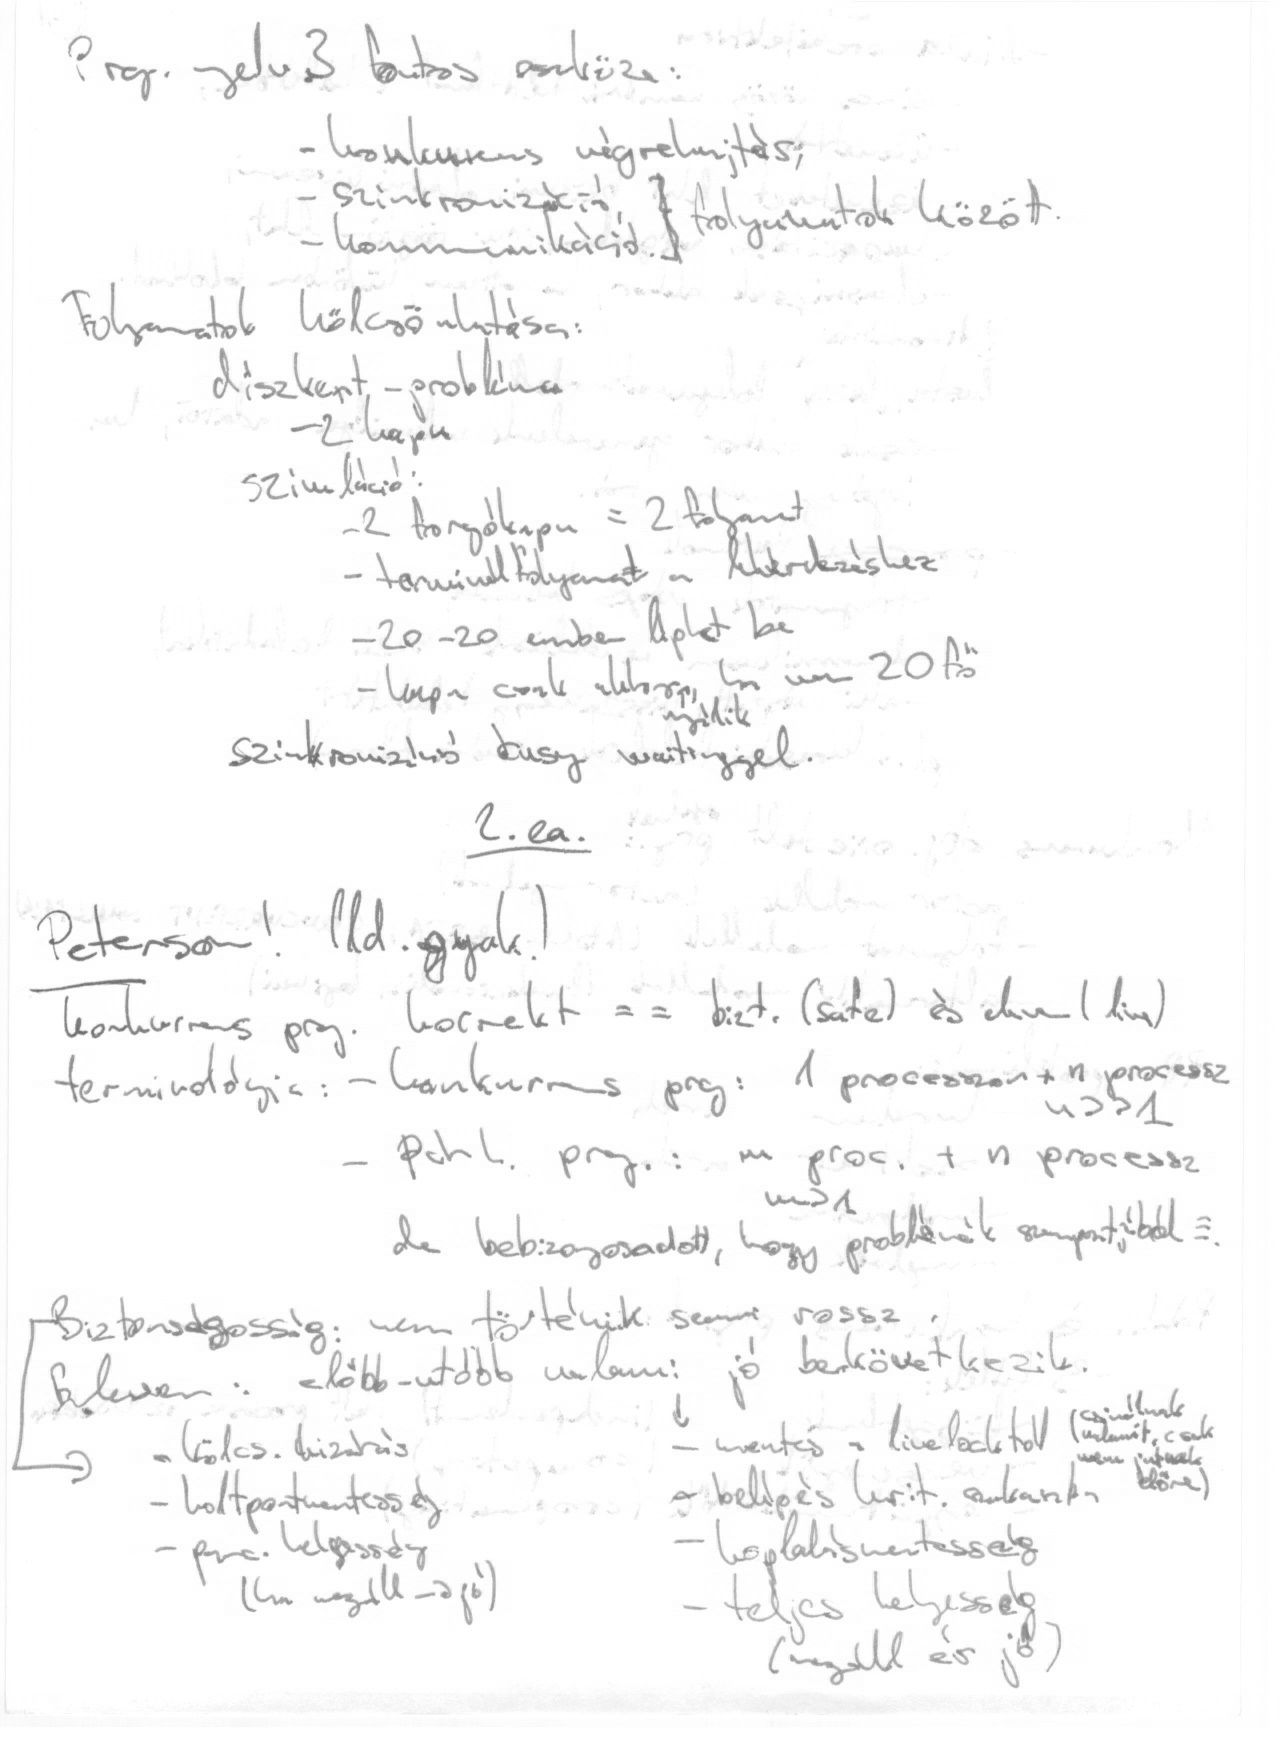 Prog. nyelv 3 fontos eszköze:
- konkurens végrehajtás;
- szinkronizáció
- kommunikáció. } folyamatok között.
Folyamatok kölcsönhatása:
díszkert-probléma
- 2 kapu
szimuláció:
- 2 forgókapu = 2 folyamat
- terminálfolyamat a lekérdezéshez
- 20-20 ember léphet be
- kapu csak akkor, ha van 20 fő
nyílik
szinkronizáció busy waitinggel.
2. ea.
Peterson! (ld. gyak!)
konkurens prg. korrekt == bizt. (safe) és eleven (live)
terminológia: - konkurens prg: 1 processzor + n processz
n>>1
- párh. prg.: m proc. + n processz
m>1
de bebizonyosodott, hogy problémák szempontjából ≡.
Biztonságosság: nem történik semmi rossz.
Eleven: előbb-utóbb valami jó bekövetkezik.
- kölcs. kizárás
- holtpontmentesség
- parc. helyesség
(ha megáll -> jó)
- mentes a livelocktól (csinálunk valamit, csak nem jutunk előre)
- belépés krit. szakaszba
- koplalásmentesség
- teljes helyesség
(megáll és jó)